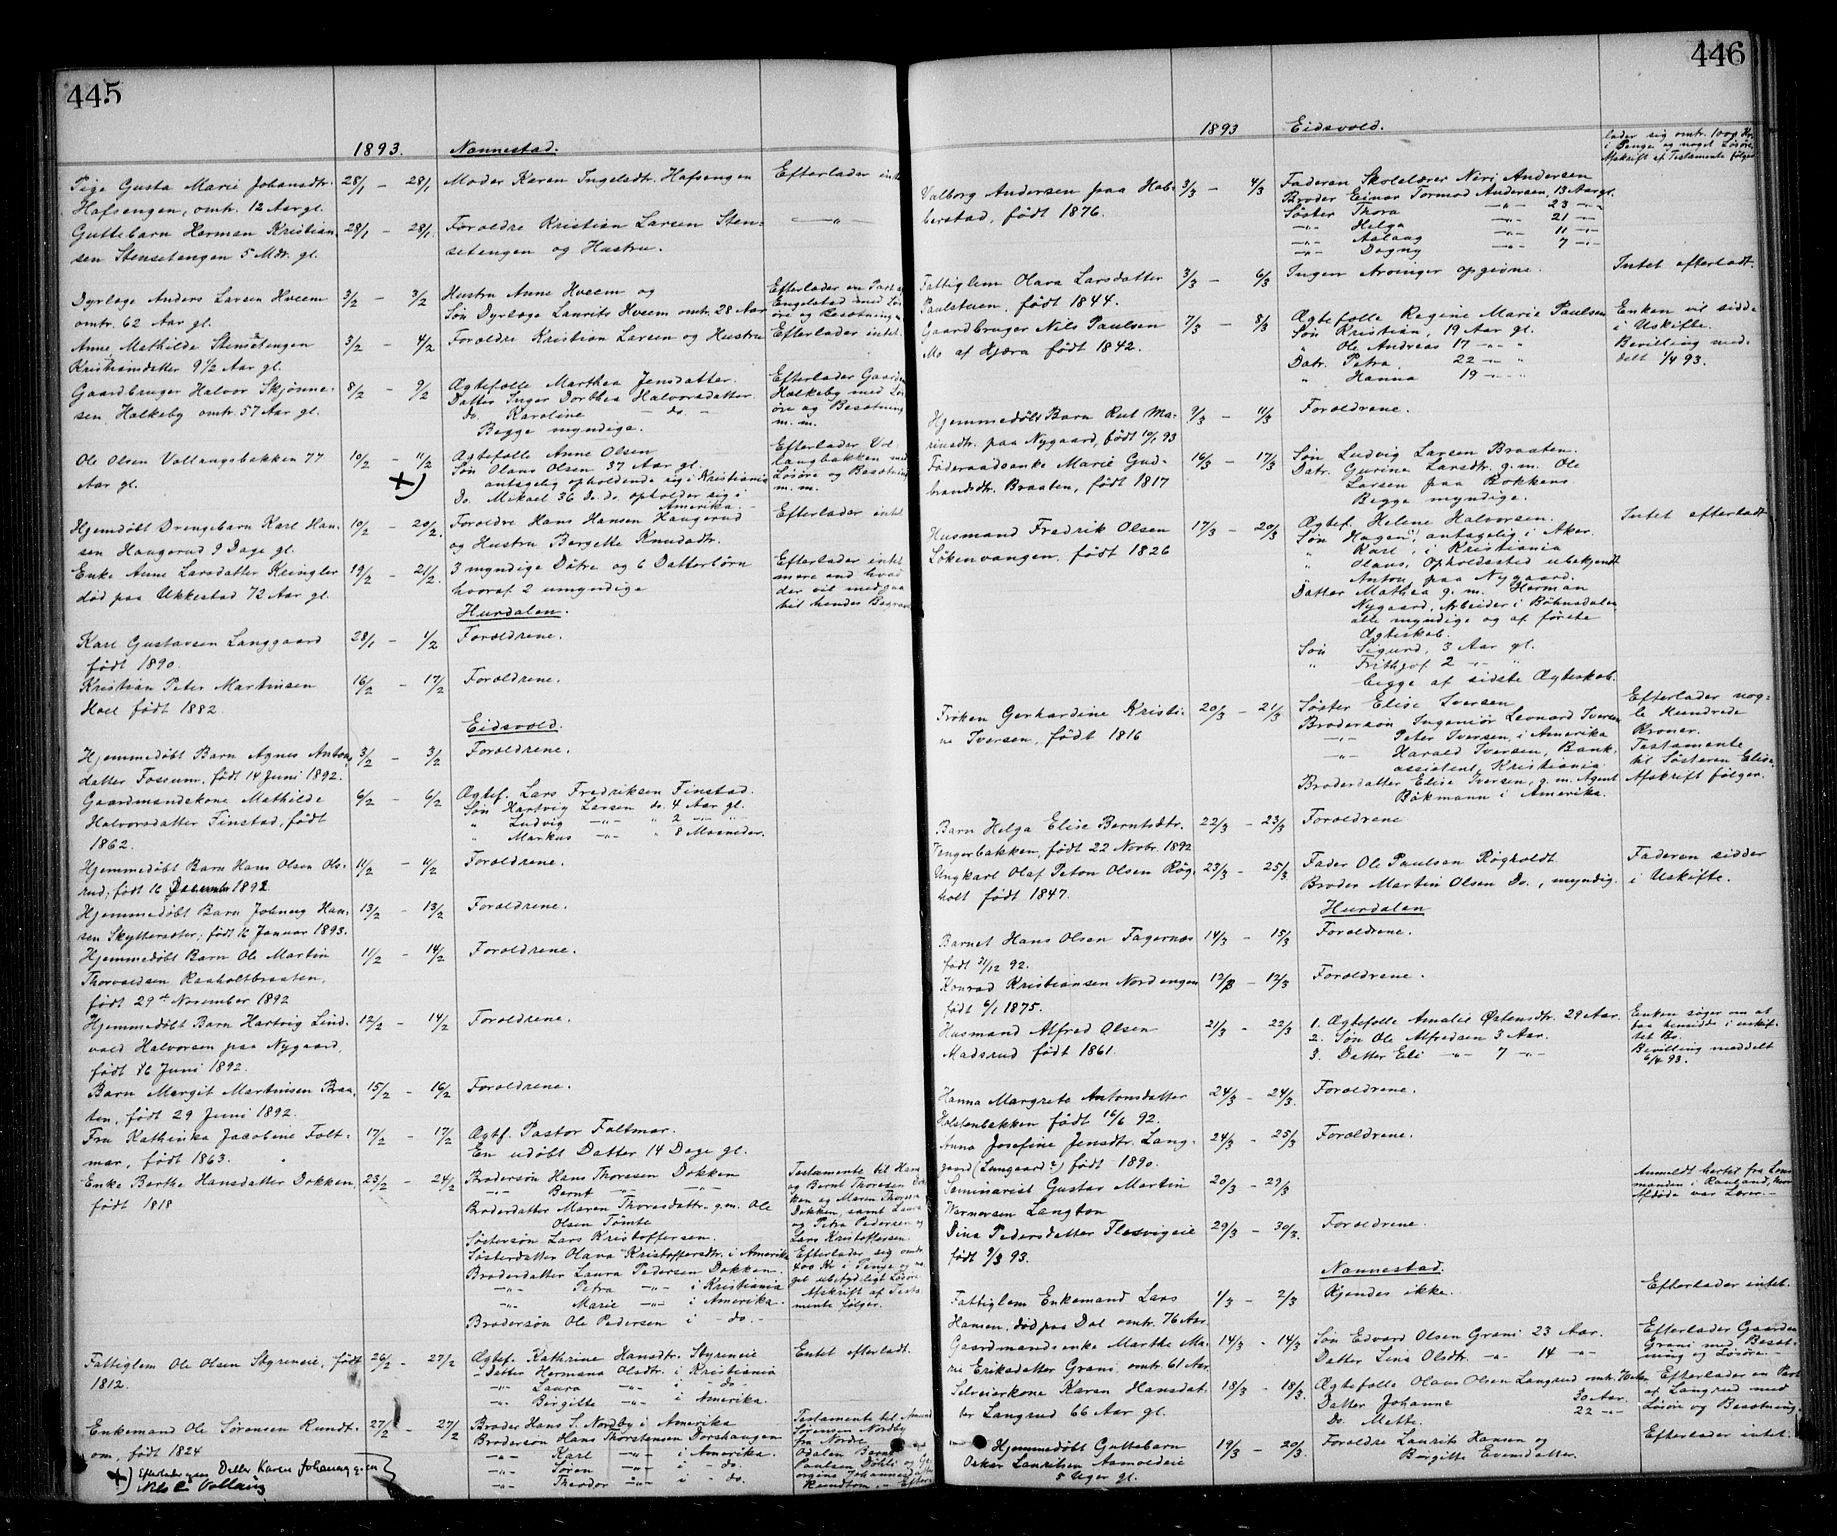 445
1893.
Nannestad.
Pige Gusta Marie Johansdtr. 28/1 — 28/1 Moder Karen Ingelsdtr. Hafsengen Efterlader intet
Hafsengen, omtr. 12 Aar gl.
Guttebarn Herman Kristian- 28/1 — 28/1 Forældre Kristian Larsen Sten- —„—
sen Stensetengen 5 Mdr. gl. setengen og Hustru.
Dyrlæge Anders Larsen Hveem 3/2 — 3/2 Hustru Anne Hveem og Efterlader en Part af
omtr. 62 Aar gl. Søn Dyrlæge Laurits Hveem omtr. 28 Aar Engelstad med Løs-
øre og Besætning
Anne Mathilde Stensetengen 3/2 — 4/2 Forældre Kristian Larsen og Hustru Efterlader intet.
Kristiansdatter 9 1/2 Aar gl.
Gaardbruger Halvor Skjønne- 8/2 — 9/2 Ægtefælle Marthea Jensdatter. Efterlader Gaarden
sen Holkeby omtr. 57 Aar gl. Datter Inger Dorthea Halvorsdatter. Holkeby med Løs-
do. Karoline — do. — øre og Besætning
Begge myndige. m. m.
Ole Olsen Vollaugsbakken 77 10/2 — 11/2 Ægtefælle Anne Olsen Efterlader Vol-
Aar gl. +) Søn Olaus Olsen 37 Aar gl. laugbakken med
antagelig opholdende sig i Kristiania Løsøre og Besætning
Do. Mikael 36 do. do. opholder sig i m. m.
Amerika.
Hjemdøbt Drengebarn Karl Han- 10/2 — 20/2. Forældre Hans Hansen Haugerud Efterlader intet
sen Haugerud 9 Dage gl. og Hustru Bergitte Knudsdtr.
Enke Anne Larsdatter Kringler 19/2 — 21/2. 3 myndige Døtre og 6 Datterbörn Efterlader intet
död paa Ukkestad 72 Aar gl. hvoraf 2 umyndige mere end hvad
der vil medgaa
til hendes Begrav
Hurdalen.
Karl Gustavsen Langgaard 28/1 — 1/2 Forældrene.
født 1890.
Kristian Peter Martinsen 16/2 — 17/2 Forældrene.
Hoel født 1882.
Eidsvold.
Hjemmedøbt Barn Agnes Anton- 3/2 — 3/2 Forældrene.
datter Fossum, født 14 Juni 1892.
Gaardmandskone Mathilde 6/2 — 6/2 Ægtef. Lars Fredriksen Finstad.
Halvorsdatter Finstad, født Søn Hartvig Larsen do. 4 Aar gl.
1862. „ Ludvig —„— „ 2 —„— „
„ Markus —„— „ 8 Maaneder.
Hjemmedøbt Barn Hans Olsen Ols- 11/2 — 11/2 Forældrene.
rud, født 16 December 1892
Hjemmedøbt Barn Johnny Han- 13/2 — 13/2 Forældrene.
sen Skytteræter, født 16 Januar 1893.
Hjemmedøbt Barn Ole Martin 11/2 — 14/2 Forældrene.
Thorvaldsen Raaholtbraaten,
født 29de November 1892
Hjemmedøbt Barn Hartvig Lind- 12/2 — 14/2 Forældrene.
vald Halvorsen paa Nygaard,
født 16 Juni 1892.
Barn Margit Martinsen Braa- 15/2 — 16/2 Forældrene.
ten, født 29 Juni 1892.
Fru Kathinka Jacobine Falt- 17/2 — 17/2 Ægtf. Pastor Faltmar.
mar, født 1863. En udøbt Datter 14 Dage gl.
Enke Berthe Hansdatter Dokken 23/2 — 24/2 Brodersøn Hans Thoresen Dokken Testamente til Hans
født 1818 —„— Bernt —„— —„— og Bernt Thoresen Dok-
Broderdatter Maren Thoresdatter g.m. Ole ken og Maren Thores-
Olsen Tömte Dokken, samt Laura
Søstersøn Lars Kristoffersen. og Petra Pedersen og
Søsterdatter Olava Kristoffersdtr. i Amerika Lars Kristoffersen.
Broderdatter Laura Pedersen Dokken. Efterlader sig omtr.
—„— Petra —„— i Kristiania 400 Kr. i Penge og no-
—„— Marie —„— i Amerika. get ubetydeligt Løsøre
Brodersøn Ole Pedersen i — do. — Afskrift af Testa-
mente følger.
Fattiglem Ole Olsen Styreneie, født 26/2 — 27/2 Ægtef. Kathrine Hansdtr. Styreneie Entet efterladt.
1812. — Datter Hermana Olsdtr. i Kristiania
—„— Laura —„— i — do.
—„— Birgitte —„— i Amerika.
Enkemand Ole Sørensen Rundt- 27/2 — 27/2 Broder Hans S. Nordby i Amerika Testamente til
om, født 1824 Brodersøn Hans Thorstensen Dorshaugen Sørensen Nordby
—„— Karl —„— i Amerika.
—„— Søren —„— i — do.
—„— Theodor —„— i — do. Rundtom. — Efter
+) Efterlader ogsaa Datter Karen Johanne g. m.
Nils E. Vollaug
446
1893
Eidsvold.
lader sig omtr. 1000 Kr.
i Penge og noget Løsøre
Afskrift af Testamente følger
Valborg Andersen paa Hab- 3/3 — 4/3 Faderen Skolelærer Niri Andersen
berstad, født 1876. Broder Einar Tormod Andersen, 13 Aar gl.
Søster Thora —„— 23 —„—
—„— Helga —„— 21 —„—
—„— Aslaug —„— 11 —„—
—„— Dagny —„— 7 —„—
Fattiglem Olava Larsdatter 3/3 — 6/3 Ingen Arvinger opgivne. Intet efterladt.
Paulstuen, født 1844.
Gaardbruger Nils Paulsen 7/3 — 8/3 Ægtefælle Regine Marie Paulsen Enken vil sidde
Mo af Hjæra født 1842. Søn Kristian, 19 Aar gl. i Uskifte.
„ Ole Andreas 17 —„— „ Bevilling med-
Datr. Petra 22 —„— „ delt 1/4 93.
„ Hanna 19 —„— „
Hjemmedøbt Barn Rut Ma- 9/3 — 11/3 Forældrene.
rinsdtr. paa Nygaard, født 10/1 93
Føderaadsenke Marie Gud- 16/3 — 17/3 Søn Ludvig Larsen Braaten.
brandsdtr. Braaten, født 1817 Datr. Gurine Larsdtr. g.m. Ole
Larsen paa Rokkens
Begge myndige.
Husmand Fredrik Olsen 17/3 — 20/3 Ægtef. Helene Halvorsen. Intet efterladt
Løkenvangen, født 1826 Søn Hagen, antagelig i Aker.
„ Karl, i Kristiania
„ Olaus, Opholdssted ubekjendt
„ Anton, paa Nygaard.
Datter Mathea g. m. Herman
Nygaard, Arbeider i Bøhnsdalen
alle myndige og af første
Ægteskab.
Søn Sigurd, 3 Aar gl.
„ Frithjof 2 —„— „
begge af sidste Ægteskab.
Frøken Gerhardine Kristi- 20/3 — 21/3 Søster Elise Iversen Efterlader nog-
ne Iversen, født 1816 Brodersøn Ingeniør Leonard Iversen le Hundrede
—„— Peter Iversen, i Amerika Kroner.
—„— Harald Iversen, Bank- Testamente
assistent, Kristiania til Søsteren Elise
Broderdatter Elise Iversen, g. m. Agent Afskrift følger.
Bøkmann i Amerika.
Barn Helga Elise Berntsdtr. 22/3 — 23/3 Forældrene
Vengerbakken, født 22 Novbr. 1892
Ungkarl Olaf Peton Olsen Røg- 23/3 — 25/3 Fader Ole Paulsen Røgholdt. Faderen sidder
holt født 1847. Broder Martin Olsen Do., myndig. i Uskifte.
Hurdalen
Barnet Hans Olsen Fagernes 14/3 — 15/3 Forældrene.
født 31/12 92.
Konrad Kristiansen Nordengen 12/3 — 12/3 Forældrene.
født 6/1 1875.
Husmand Alfred Olsen 21/3 — 22/3 1. Ægtefælle Amalie Østensdtr. 29 Aar. Enken søger om at
Madsrud født 1861. 2. Søn Ole Alfredsen 3 Aar. faa hensidde i uskif-
3. Datter Eli —„— 7 —„— tet Bo.
Bevilling meddelt
6/4 93.
Hanna Margrete Antonsdatter 24/3 — 24/3. Forældrene.
Holstenbakken født 16/6 92.
Anna Josefine Jensdtr. Lang- 24/3 — 25/3 Forældrene.
gaard (Lungaard?) født 1890.
Seminarist Gustav Martin 20/3 — 29/3 Anmeldt hertil fra Lens-
Wernersen Langton manden i Rauland, hvor
Afdøde var Lærer. —
Dina Pedersdatter Flesvigeie 29/3 — 30/3. Forældrene.
født 9/3 93.
Nannestad.
Fattiglem Enkemand Lars 1/3 — 2/3 Kjendes ikke. Efterlader intet.
Hansen, död paa Dal omtr. 76 Aar.
Gaardmandsenke Marthe Ma- 14/3 — 14/3 Søn Edvard Olsen Grani 23 Aar. Efterlader Gaarden
rie Eriksdatter Grani, omtr. 61 Aar. Datter Lina Olsdtr. —„— 14 —„— Grani med Besæt-
ning og Løsøre.
Selveierkone Karen Hansdat- 18/3 — 18/3. Ægtefælle Olaus Olsen Langrud omtr. Efterlader en Part
ter Langrud 66 Aar gl. Datter Johanne 30 Aar. af Langrud med
Do. Mette. 22 —„— Løsøre og Besætning.
Hjemmedøbt Guttebarn 19/3 — 20/3. Forældre Laurits Hansen og Efterlader intet.
Oskar Lauritsen Aamodteie Birgitte Evensdatter.
5 Uger gl.